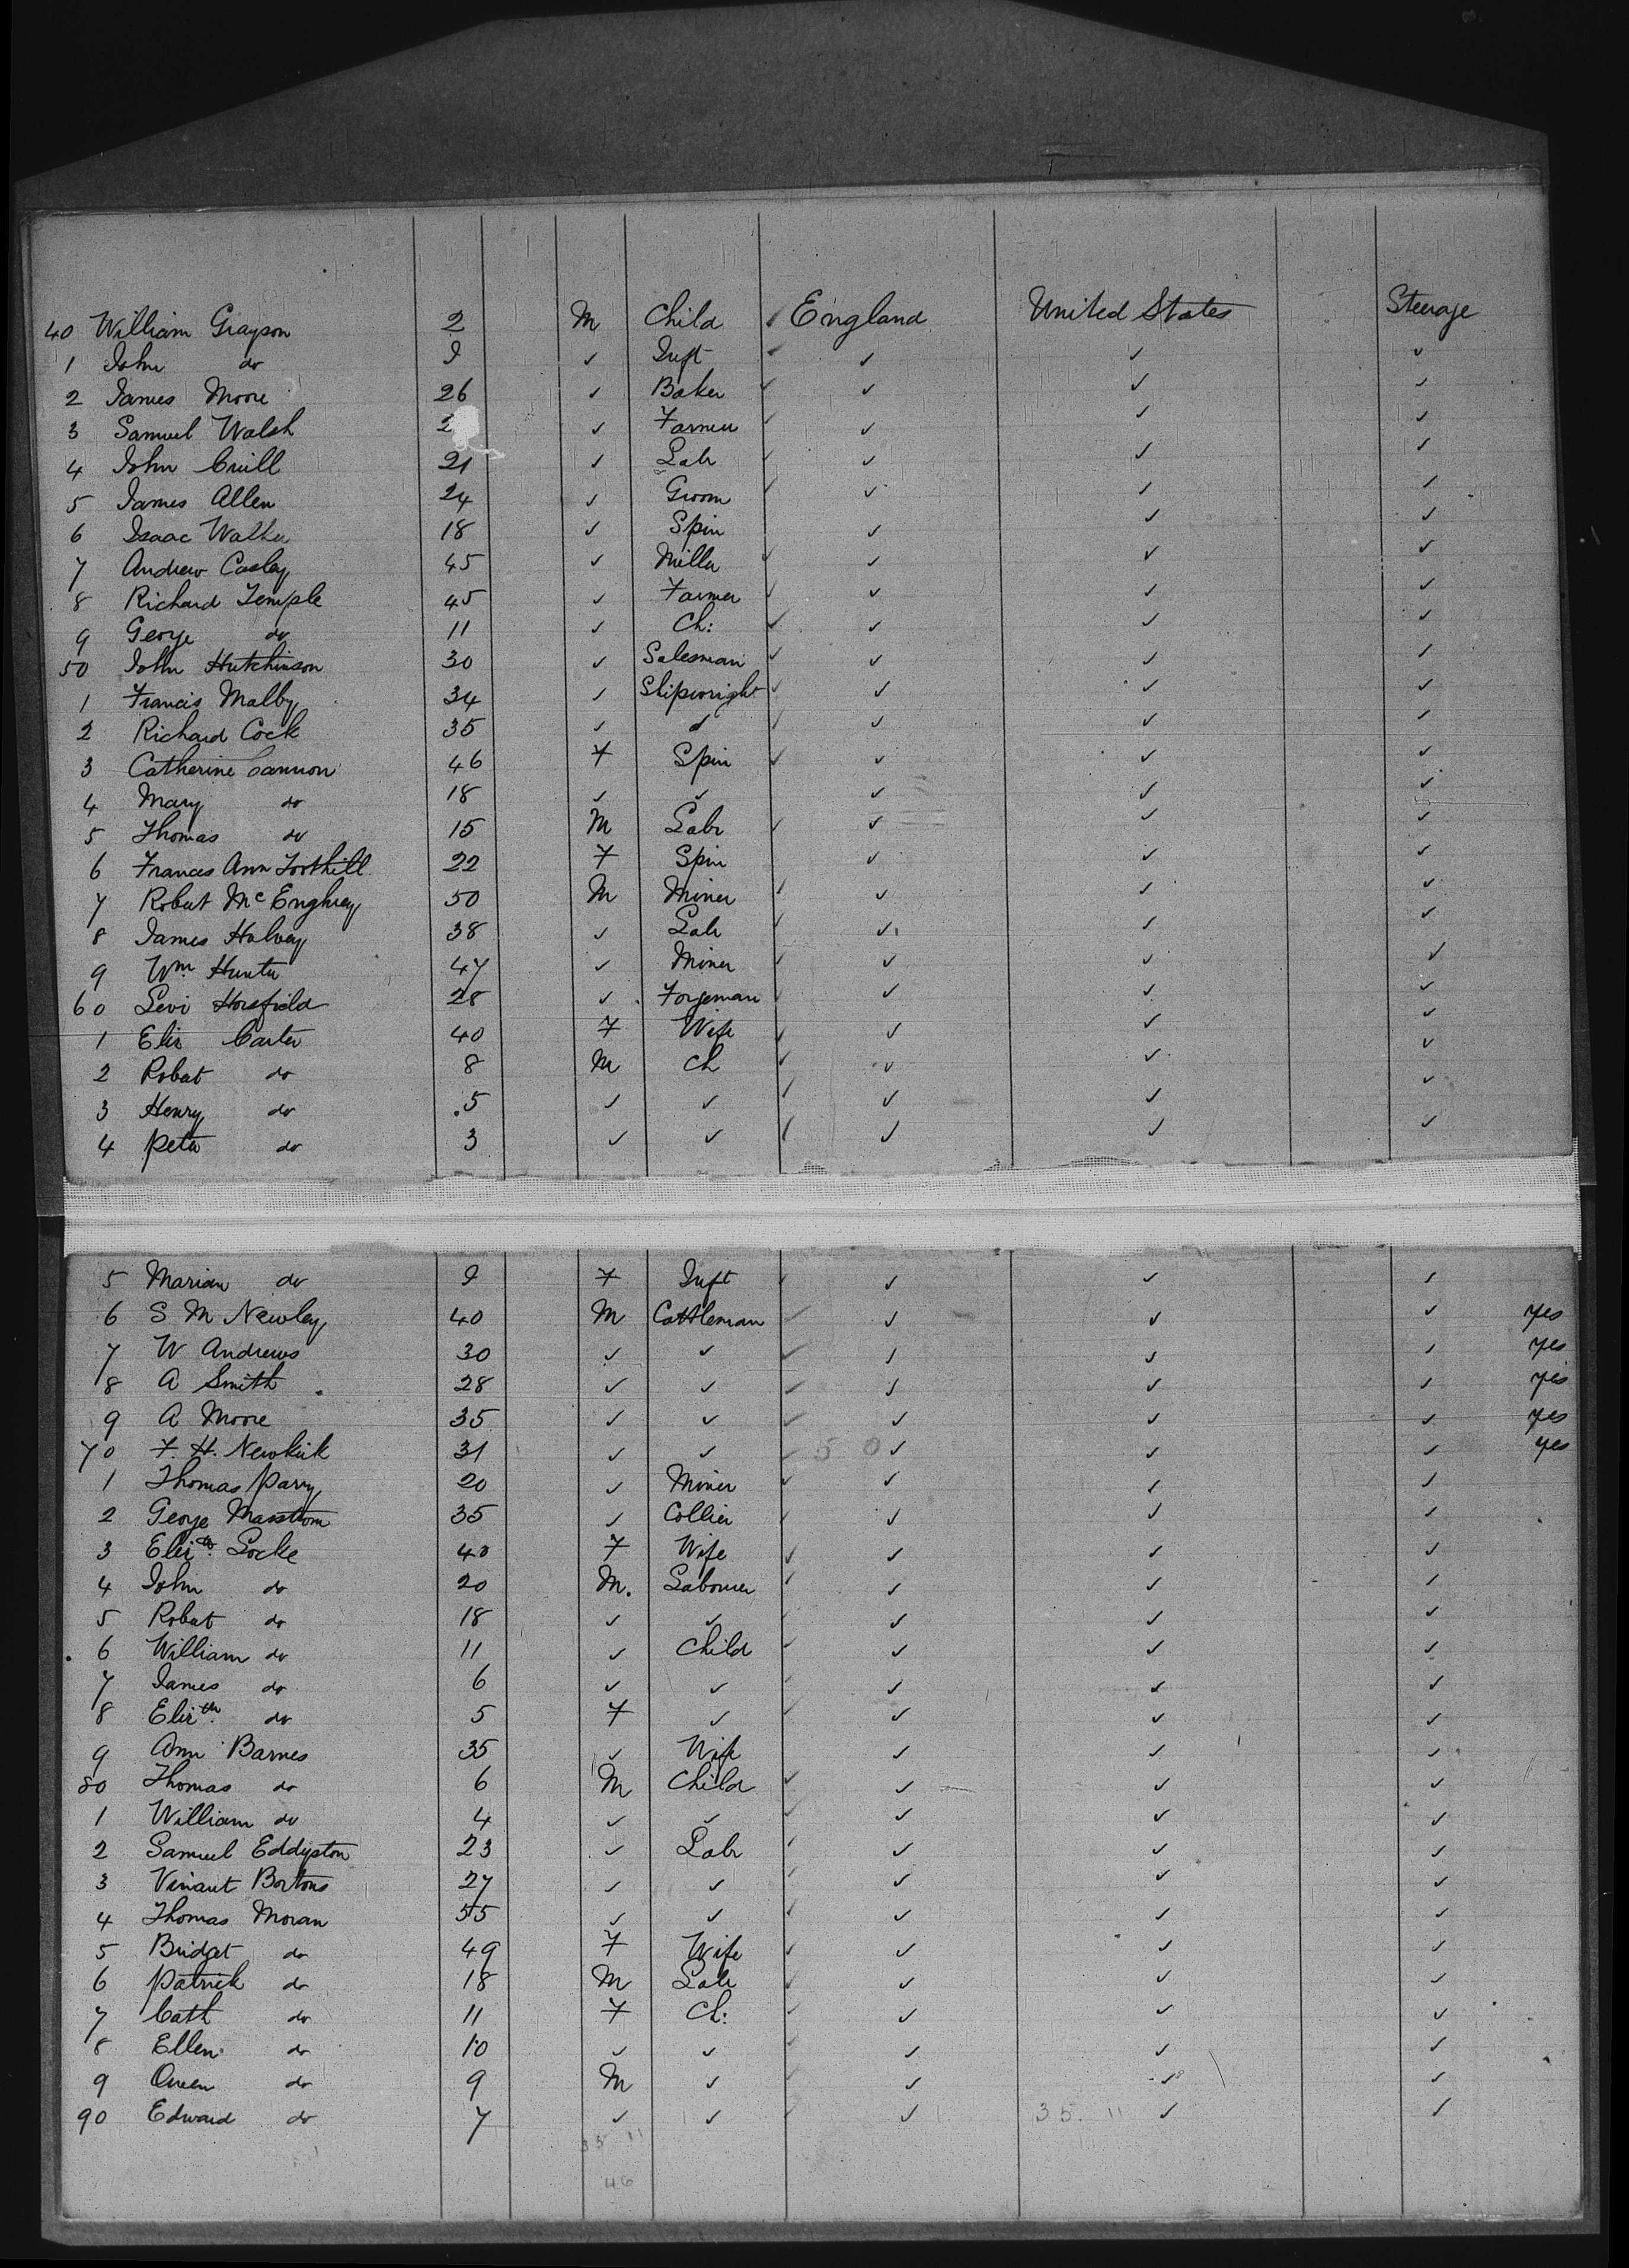 40 William Grayson 2 M Child ✓ England United States Steerage
1 John do I ✓ Inft ✓ ✓ ✓ ✓
2 James Moore 26 ✓ Baker ✓ ✓ ✓ ✓
3 Samuel Walsh 2 ✓ Farmer ✓ ✓ ✓ ✓
4 John 21 ✓ Labr ✓ ✓ ✓ ✓
5 James Allen 24 ✓ Groom ✓ ✓ ✓ ✓
6 Isaac Walker 18 ✓ Spin ✓ ✓ ✓
7 Andrew Casley 45 ✓ Miller ✓ ✓ ✓ ✓
8 Richard Temple 45 ✓ Farmer ✓ ✓ ✓ ✓
9 George do 11 ✓ Ch: ✓ ✓ ✓ ✓
50 John Hutchinson 30 ✓ Salesman ✓ ✓ ✓ ✓
1 Francis Malby 34 ✓ Shipwright ✓ ✓ ✓ ✓
2 Richard Cock 35 ✓ d ✓ ✓ ✓ ✓
3 Catherine Cannon 46 F Spin ✓ ✓ ✓ ✓
4 Mary do 18 ✓ ✓ ✓ ✓ ✓
5 Thomas do 15 M Labr ✓ ✓ ✓ ✓
6 Frances Ann Toothill 22 F Spin ✓ ✓ ✓
7 Robert 50 M Miner ✓ ✓ ✓ ✓
8 James Halvey 38 ✓ Labr ✓ ✓ ✓ ✓
9 Wm Hunter 47 ✓ Miner ✓ ✓ ✓ ✓
60 Levi Horsfield 28 ✓ Forgeman ✓ ✓ ✓ ✓
1 Eliz Carter 40 F Wife ✓ ✓ ✓ ✓
2 Robert do 8 M Ch ✓ ✓ ✓ ✓
3 Henry do 5 ✓ ✓ ✓ ✓ ✓ ✓
4 Peter do 3 ✓ ✓ ✓ ✓ ✓ ✓
5 Marian do I F Inft ✓ ✓ ✓ ✓
6 S M Newley 40 M Cattleman ✓ ✓ ✓ ✓ yes
7 W Andrews 30 ✓ ✓ ✓ ✓ ✓ ✓ yes
8 A Smith 28 ✓ ✓ ✓ ✓ ✓ ✓ yes
9 A Moore 35 ✓ ✓ ✓ ✓ ✓ ✓ yes
70 F. H. Newkirk 31 ✓ ✓ ✓ 50 ✓ ✓ ✓ yes
1 Thomas Parry 20 ✓ Miner ✓ ✓ ✓ ✓
2 George 35 ✓ Collier ✓ ✓ ✓ ✓
3 Elizth Locke 40 F Wife ✓ ✓ ✓ ✓
4 John do 20 M. Labourer ✓ ✓ ✓ ✓
5 Robert do 18 ✓ ✓ ✓ ✓ ✓ ✓
6 William do 11 ✓ Child ✓ ✓ ✓ ✓
7 James do 6 ✓ ✓ ✓ ✓ ✓ ✓
8 Elizth do 5 F ✓ ✓ ✓ ✓ ✓
9 Ann Barnes 35 ✓ Wife ✓ ✓ ✓
80 Thomas do 6 M Child ✓ ✓ ✓ ✓
1 William do 4 ✓ ✓ ✓ ✓ ✓ ✓
2 Samuel Eddyston 23 ✓ Labr ✓ ✓ ✓ ✓
3 Bortons 27 ✓ ✓ ✓ ✓ ✓ ✓
4 Thomas Moran 55 ✓ ✓ ✓ ✓ ✓ ✓
5 Bridget do 49 F Wife ✓ ✓ ✓ ✓
6 Patrick do 18 M Labr ✓ ✓ ✓ ✓
7 Cath do 11 F Ch: ✓ ✓ ✓ ✓
8 Ellen do 10 ✓ ✓ ✓ ✓ ✓ ✓
9 Owen do 9 M ✓ ✓ ✓ ✓ ✓
90 Edward do 7 ✓ ✓ ✓ ✓ 35. 11 ✓ ✓
35 11
46